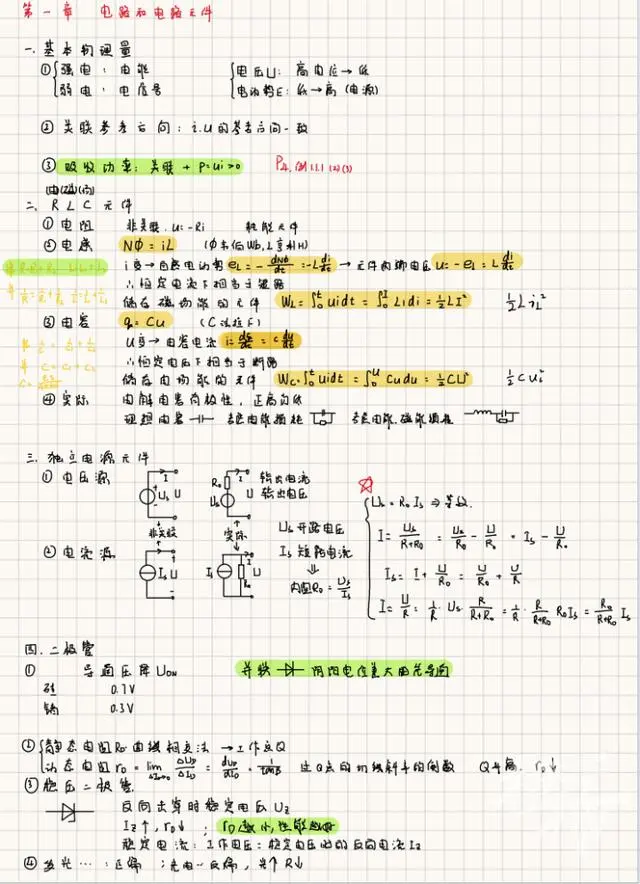 第一章 电路和电路元件
一. 基本物理量
① 强电: 电能 电压U: 高电位→低
弱电: 电信号 电动势E: 低→高 (电源)
② 关联参考方向: i.u的参考方向一致
③ 吸收功率: 关联 + P=ui>0 P4.例1.1.1 (2)(3)
二. R L C 元件
① 电阻 非关联. u=-Ri 耗能元件
② 电感 NΦ = iL (Φ韦伯Wb, L亨利H)
i变→自感电动势 eL = -dNΦ/dt = -L di/dt → 元件两端电压 u = -eL = L di/dt
∴恒定电流下相当于短路
储存磁场能的元件 WL = ∫₀ᵗ uidt = ∫₀ᴵ Lidi = ½LI² ½LiL²
③ 电容 q = Cu (C法拉F)
u变→电容电流 i = dq/dt = C du/dt
∴恒定电压下相当于断路
储存电场能的元件 Wc = ∫₀ᵗ uidt = ∫₀ᵁ Cudu = ½CU² ½Cu²
④ 实际 电解电容有极性, 正高负低
理想电容 考虑电能损耗 考虑电能.磁能损耗
三. 独立电源元件
① 电压源 I Us U R0 I Us U 输出电流
输出电压
Us = R0 Is ⇒ 等效.
非关联 实际 Us 开路电压
I = Us/(R+R0) = Us/R0 - U/R0 = Is - U/R0
② 电流源 I Is U I Is R0 U Is 短路电流
Is = I + U/R0 = U/R0 + U/R
⇓
内阻R0 = Us/Is
I = U/R = 1/R · Us · R/(R+R0) = 1/R · R/(R+R0) R0Is = R0/(R+R0) Is
四. 二极管
① 导通压降 UON 并联 阴阳电位差大的先导通
硅 0.7V
锗 0.3V
② 静态电阻 R0: 曲线相交法 → 工作点Q
动态电阻 rD = lim ΔUD/ΔID = duD/diD = 1/tanβ 过Q点的切线斜率的倒数 Q升高. rD↓
③ 稳压二极管.
反向击穿时稳定电压 UZ
IZ↑, rD↓ ; rD越小, 性能越好
稳定电流: 工作电压=稳定电压时的反向电流 IZ
④ 发光…: 正偏 ; 光电…反偏, 光↑ R↓